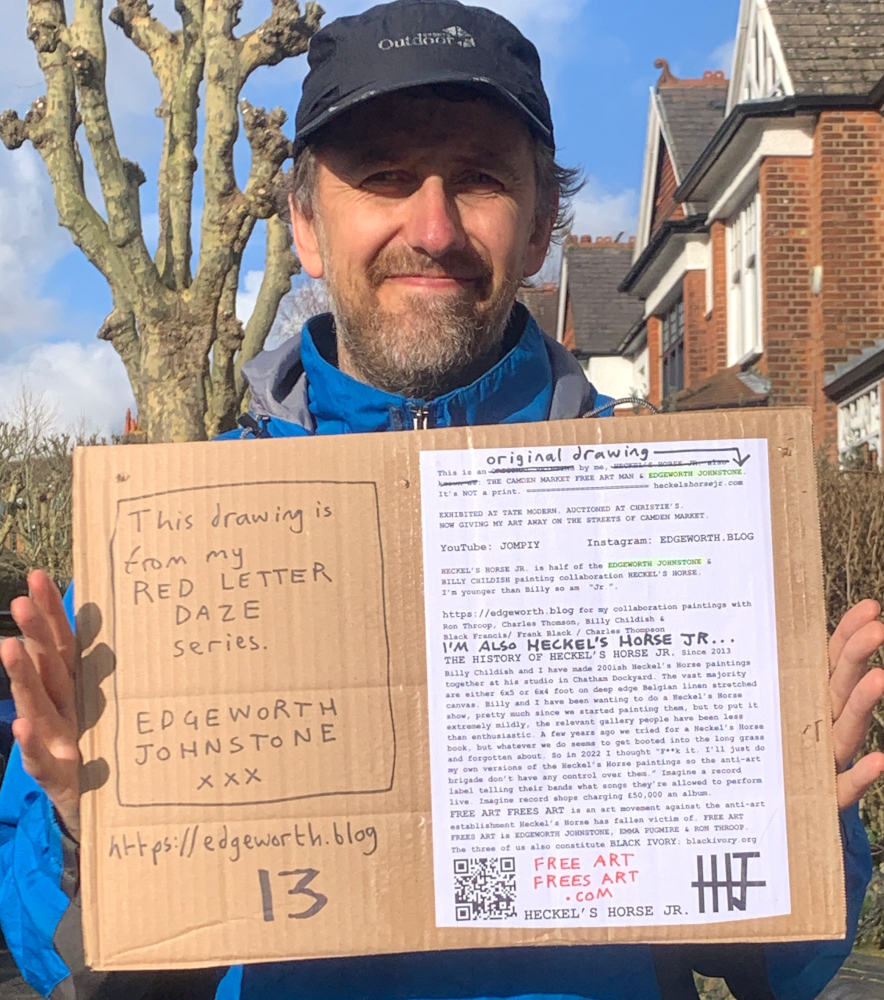 Outdoor
This drawing is
from my
RED LETTER
DAZE
series.
EDGEWORTH
JOHNSTONE
xxx
https://edgeworth.blog
13
original drawing
This is an by me,
: THE CAMDEN MARKET FREE ART MAN & EDGEWORTH JOHNSTONE.
It's NOT a print. ==================== heckelshorsejr.com
EXHIBITED AT TATE MODERN. AUCTIONED AT CHRISTIE'S.
NOW GIVING MY ART AWAY ON THE STREETS OF CAMDEN MARKET.
YouTube: JOMPIY Instagram: EDGEWORTH.BLOG
HECKEL'S HORSE JR. is half of the EDGEWORTH JOHNSTONE &
BILLY CHILDISH painting collaboration HECKEL'S HORSE.
I'm younger than Billy so am "Jr".
https://edgeworth.blog for my collaboration paintings with
Ron Throop, Charles Thomson, Billy Childish &
Black Francis/ Frank Black / Charles Thompson
I'M ALSO HECKEL'S HORSE JR...
THE HISTORY OF HECKEL'S HORSE JR. Since 2013
Billy Childish and I have made 200ish Heckel's Horse paintings
together at his studio in Chatham Dockyard. The vast majority
are either 6x5 or 6x4 foot on deep edge Belgian linen stretched
canvas. Billy and I have been wanting to do a Heckel's Horse
show, pretty much since we started painting them, but to put it
extremely mildly, the relevant gallery people have been less
than enthusiastic. A few years ago we tried for a Heckel's Horse
book, but whatever we do seems to get booted into the long grass
and forgotten about. So in 2022 I thought "F**k it. I'll just do
my own versions of the Heckel's Horse paintings so the anti-art
brigade don't have any control over them." Imagine a record
label telling their bands what songs they're allowed to perform
live. Imagine record shops charging £50,000 an album.
FREE ART FREES ART is an art movement against the anti-art
establishment Heckel's Horse has fallen victim of. FREE ART
FREES ART is EDGEWORTH JOHNSTONE, EMMA PUGMIRE & RON THROOP.
The three of us also constitute BLACK IVORY: blackivory.org
FREE ART
FREES ART
.COM
HECKEL'S HORSE JR.
HJ